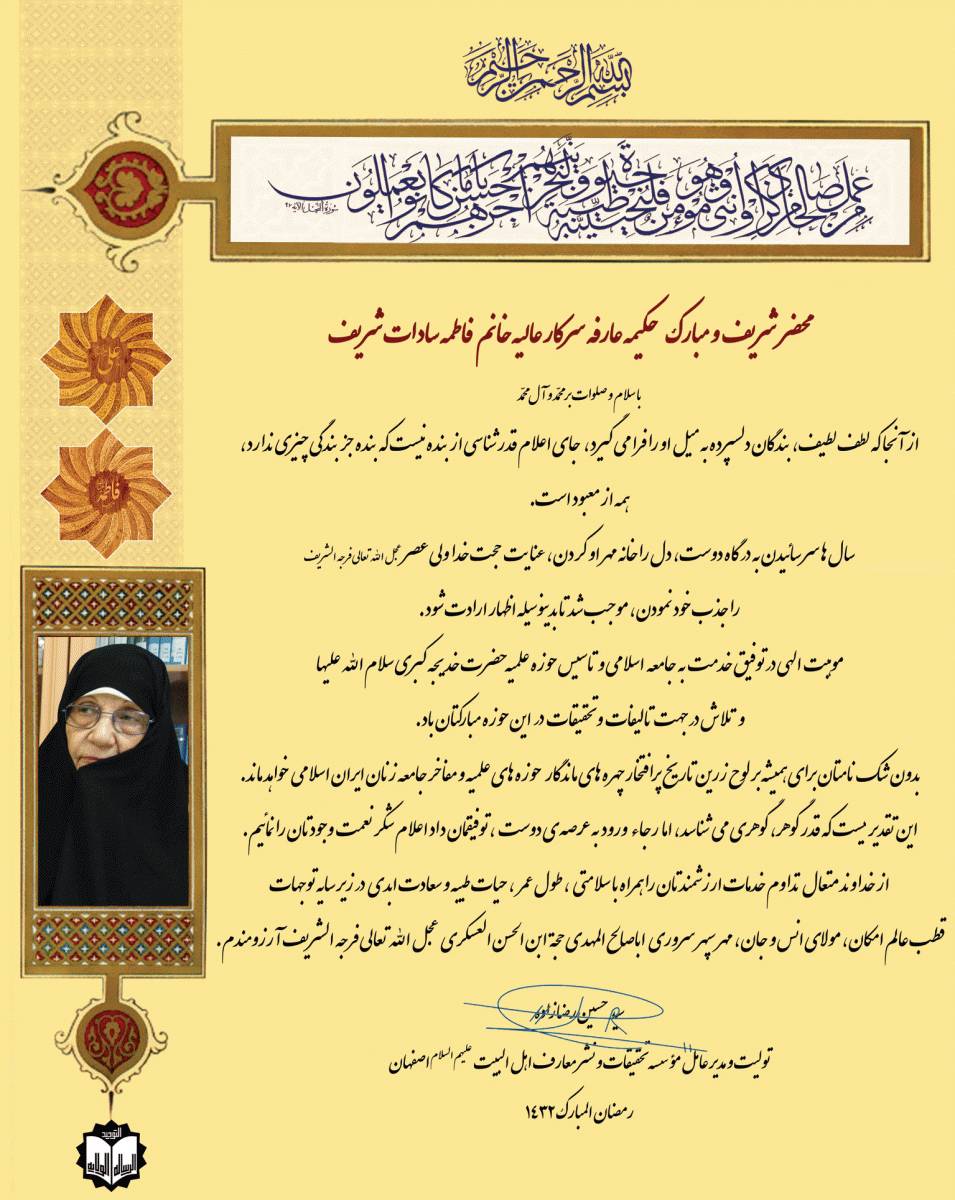 بسم الله الرحمن الرحیم
من عمل صالحا من ذکر او انثی و هو مؤمن فلنحیینه حیاة طیبة و لنجزینهم اجرهم باحسن ما کانوا یعملون
سورة النحل الآیه ۹۷
محضر شریف و مبارک حکیمه عارفه سرکار عالیه خانم فاطمه سادات شریف
با سلام و صلوات بر محمّد و آل محمّد
از آنجا که لطف لطیف، بندگان دلسپرده به میل او را فرا می گیرد، جای اعلام قدرشناسی از بنده نیست که بنده جز بندگی چیزی ندارد،
همه از معبود است.
سال ها سر سائیدن به درگاه دوست، دل را خانه مهر او کردن، عنایت حجت خدا ولی عصر عجل الله تعالی فرجه الشریف
را جذب خود نمودن، موجب شد تا بدینوسیله اظهار ارادت شود.
موهبت الهی در توفیق خدمت به جامعه اسلامی و تاسیس حوزه علمیه حضرت خدیجه کبری سلام الله علیها
و تلاش در جهت تالیفات و تحقیقات در این حوزه مبارکتان باد.
بدون شک نامتان برای همیشه بر لوح زرین تاریخ پر افتخار چهره های ماندگار حوزه های علمیه و مفاخر جامعه زنان ایران اسلامی خواهد ماند.
این تقدیریست که قدر گوهر، گوهری می شناسد، اما رجاء ورود به عرصه ی دوست، توفیقمان داد اعلام شکر نعمت وجودتان را نمائیم.
از خداوند متعال تداوم خدمات ارزشمندتان را همراه با سلامتی، طول عمر، حیات طیبه و سعادت ابدی در زیر سایه توجهات
قطب عالم امکان، مولای انس و جان، مهر سپهر سروری اباصالح المهدی حجة ابن الحسن العسکری عجل الله تعالی فرجه الشریف آرزومندم.
حسین رضازاده
تولیت و مدیر عامل مؤسسه تحقیقات و نشر معارف اهل البیت علیهم السلام اصفهان
رمضان المبارک ۱۴۳۲
علی
فاطمه
التوحید
الرسالة الولایة